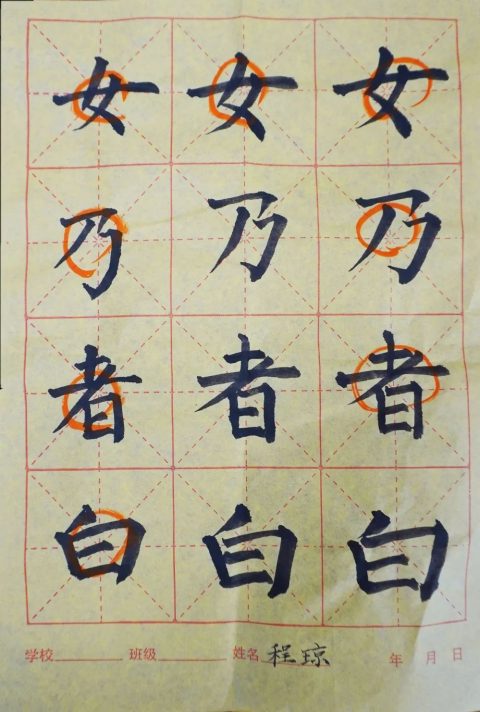 女 女 女
乃 乃 乃
者 者 者
白 白 白
学校 班级 姓名 程琼 年 月 日